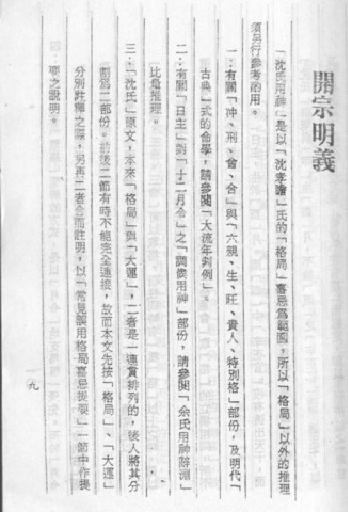 開宗明義
「沈氏用神」是以「沈孝瞻」氏的「格局」喜忌為範圍,所以「格局」以外的推理
須另行參考的用。
一:有關「冲、刑、會、合」與「六親、生、旺、貴人、特別格」部份,及明代「
古典」式的命學,請參閱「大流年判例」。
二:有關「日主」對「十二月令」之「調候用神」部份,請參閱「余氏用神辭淵」
比電推理。
三:「沈氏」原文,本來「格局」與「大運」,二者是一連貫排列的,後人將其分
割為二部份。前後二節有時不能完全連接,故而本文先按「格局」、「大運」
分別註釋之際,另再二者合而註明,以「常見誤用格局喜忌提要」一節中作提
要之說明。
九